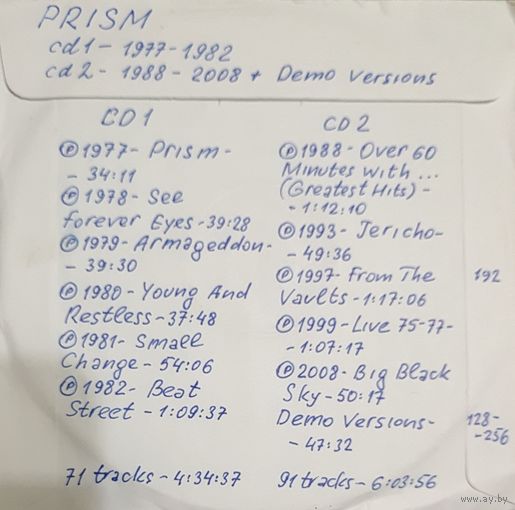 PRISM
cd1 - 1977 - 1982
cd2 - 1988 - 2008 + Demo versions
CD1
Ⓟ1977- Prism -
- 34:11
Ⓟ1978- See
forever Eyes - 39:28
Ⓟ1979- Armageddon -
- 39:30
Ⓟ1980- Young And
Restless - 37:48
Ⓟ1981- Small
Change - 54:06
Ⓟ1982- Beat
Street - 1:09:37
71 tracks - 4:34:37
CD2
Ⓟ1988- Over 60
Minutes with ...
(Greatest Hits) -
- 1:12:10
Ⓟ1993- Jericho -
- 49:36
Ⓟ1997- From The
Vaults - 1:17:06
192
Ⓟ1999- Live 75-77 -
- 1:07:17
Ⓟ2008- Big Black
Sky - 50:17
Demo Versions -
- 47:32
128-
-256
91 tracks - 6:03:56
www.ay.by